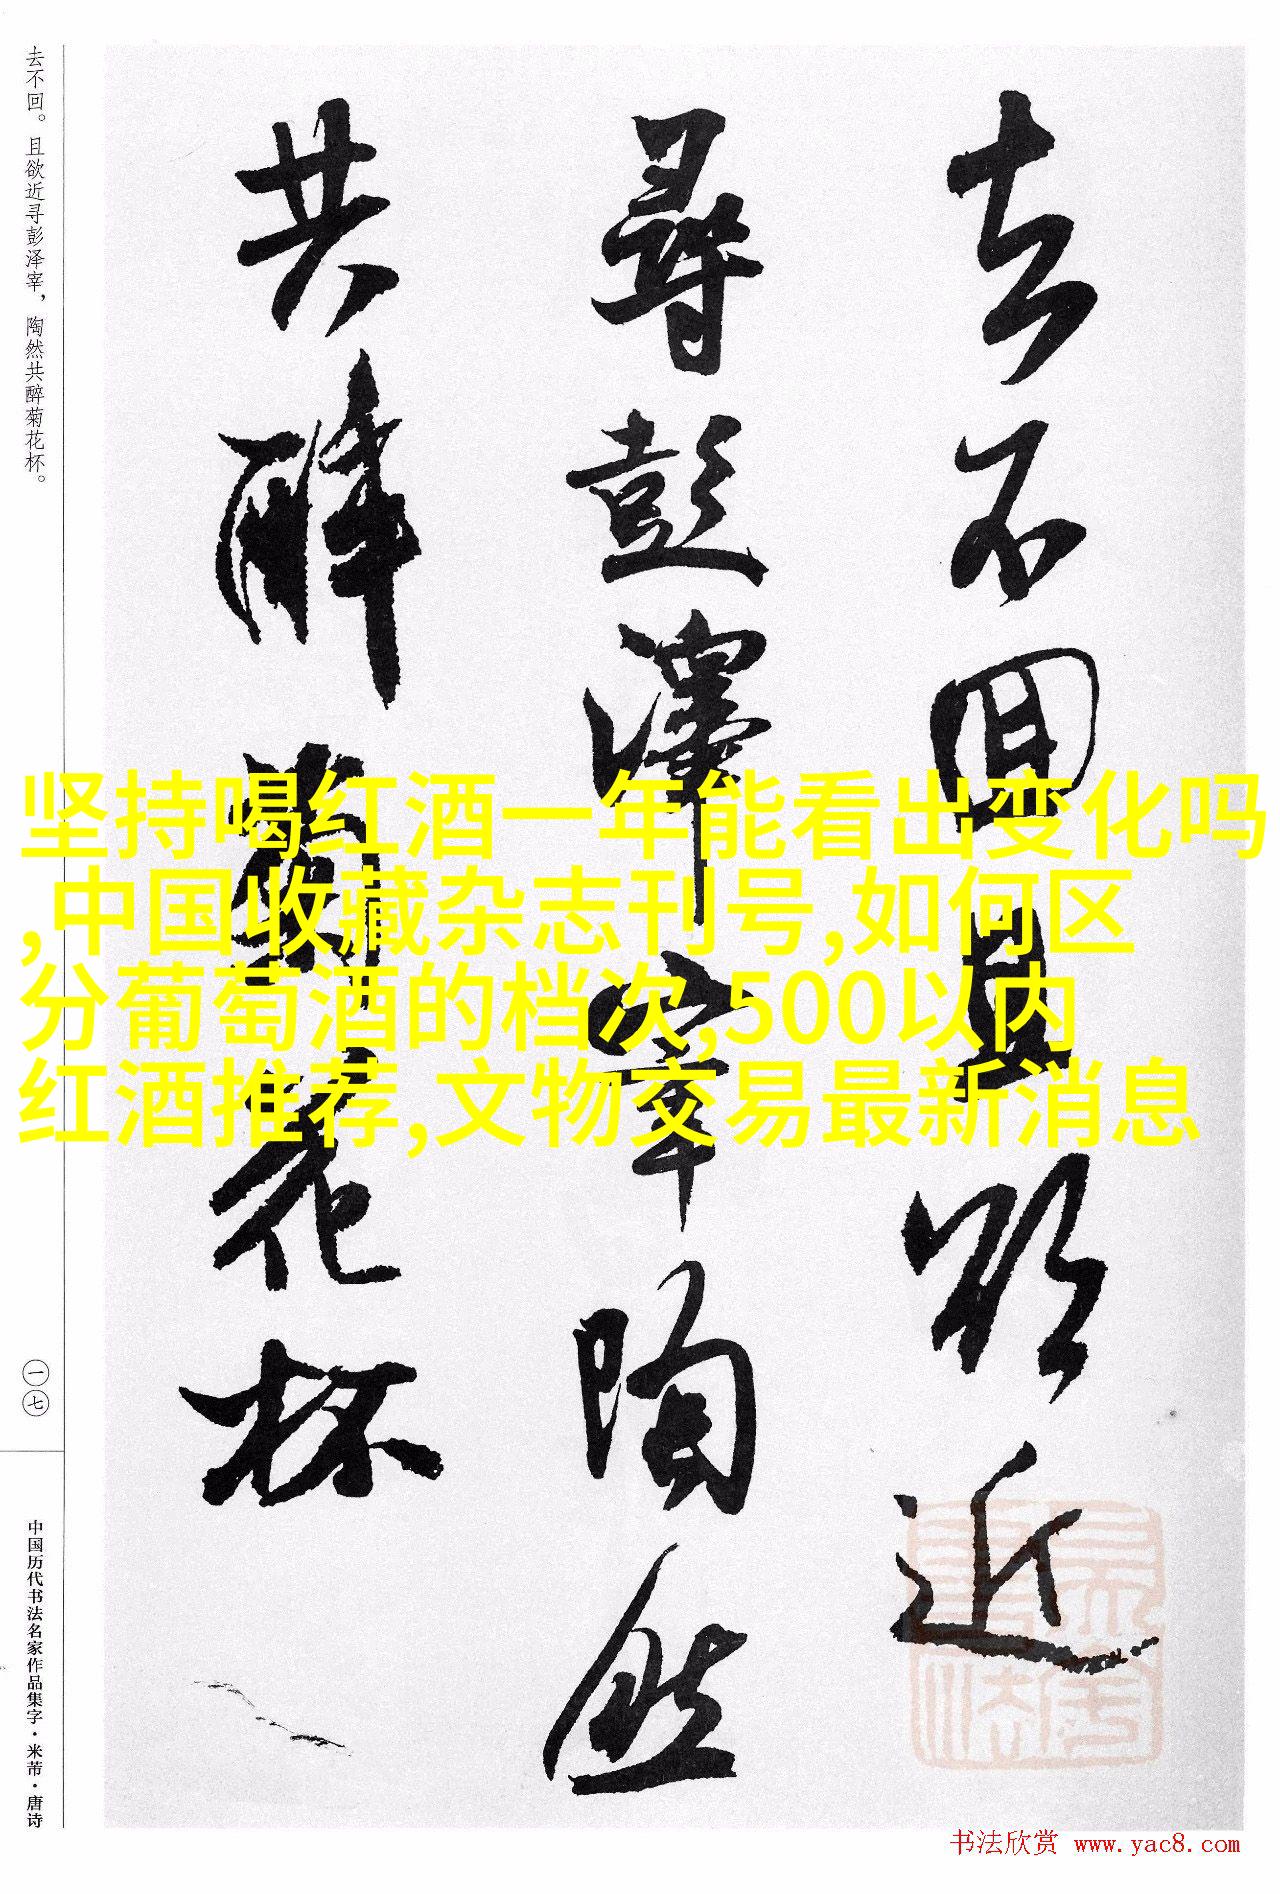 去不回且欲近
尋彭澤宰陶然
共醉菊花杯
去不回。且欲近寻彭泽宰，陶然共醉菊花杯。
一七
中国历代书法名家作品集字·米芾·唐诗
坚持喝红酒一年能看出变化吗
,中国收藏杂志刊号,如何区
分葡萄酒的档次,500以内
红酒推荐,文物交易最新消息
书法欣赏 www.yac8.com